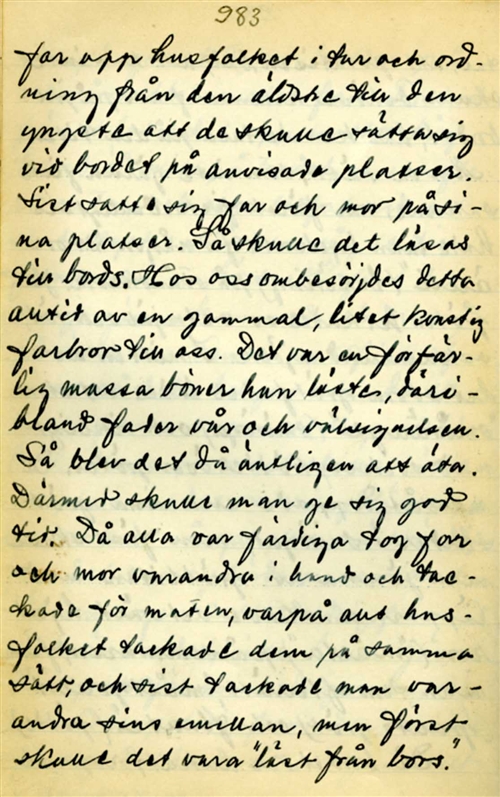 983
far upp husfolket i tur och ord-
ning från den äldste till den
yngste att de skulle sätta sig
vid bordet på anvisade platser.
Sist satte sig far och mor på si-
na platser. Så skulle det läsas
till bords. Hos oss ombesörjdes detta
alltid av en gammal, litet konstig
farbror till oss. Det var en förfär-
lig massa böner han läste, däri-
bland fader vår och välsignelsen.
Så blev det då äntligen att äta.
Därmed skulle man ge sig god
tid. Då alla var färdiga tog far
och mor varandra i hand och tac-
kade för maten, varpå allt hus-
folket tackade dem på samma
sätt, och sist tackade man var-
andra sins emellan, men först
skulle det vara "läst från bors."